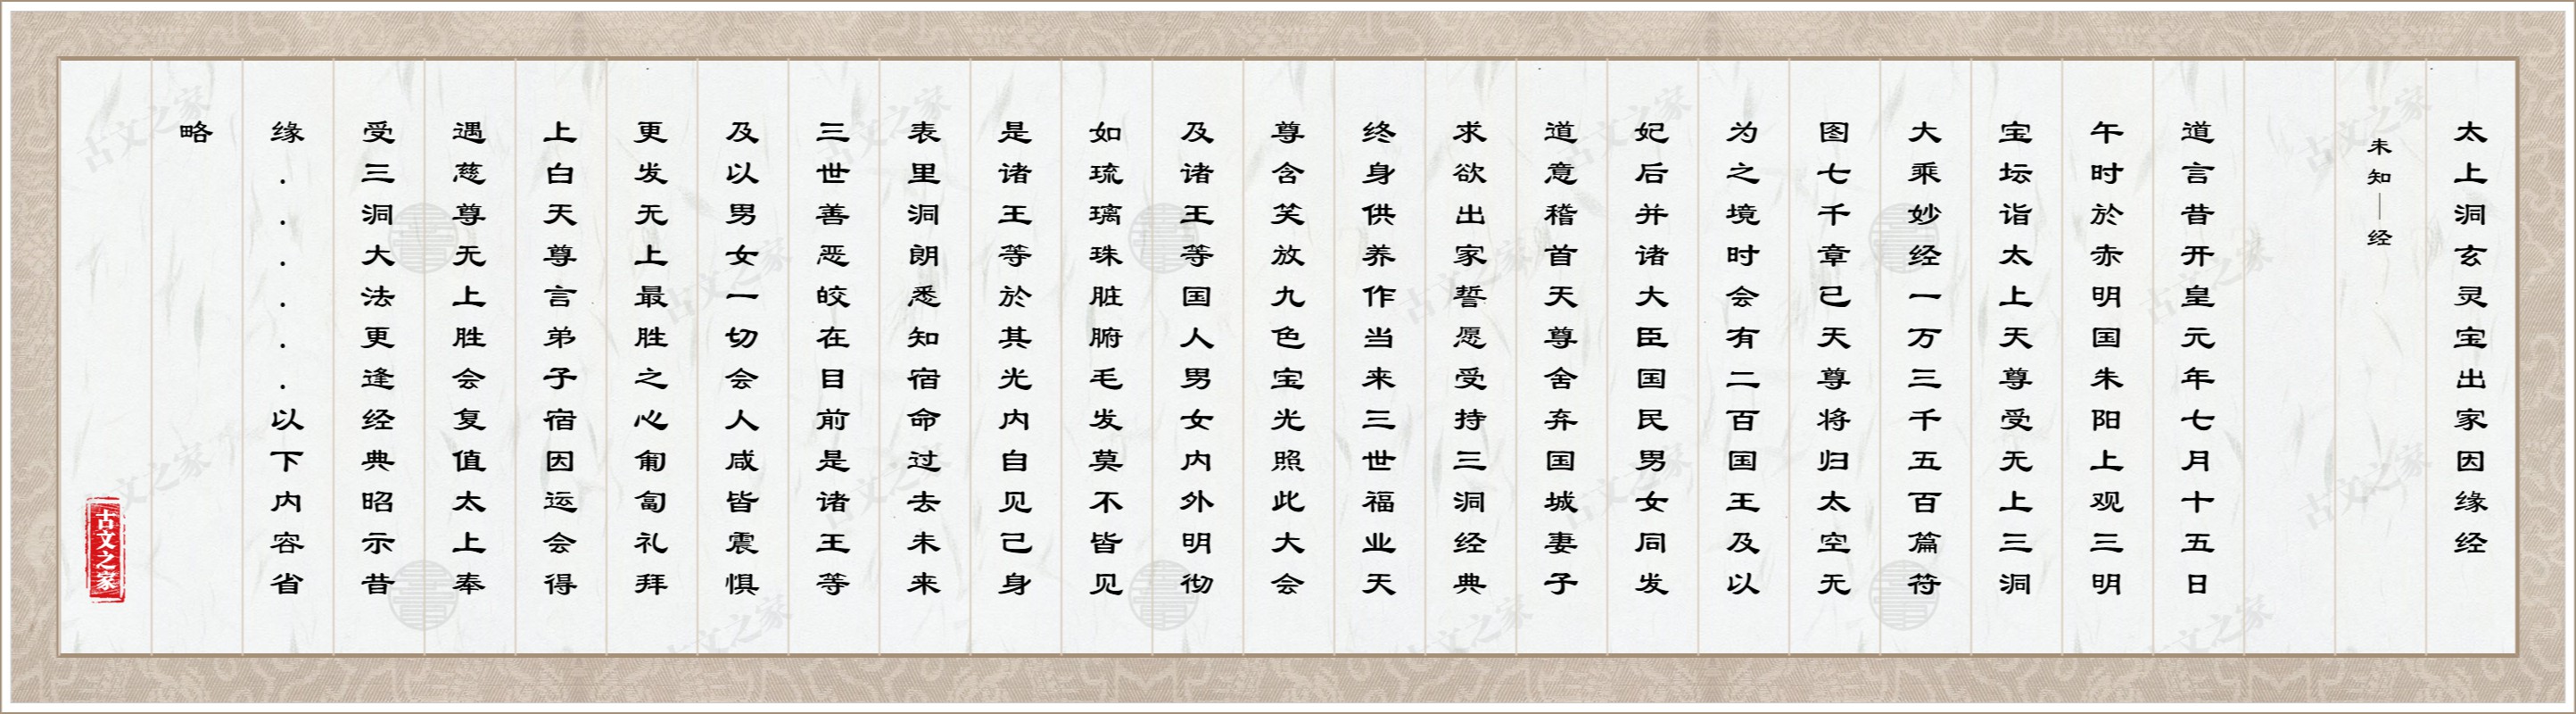 太上洞玄灵宝出家因缘经
未知｜经
道言昔开皇元年七月十五日
午时於赤明国朱阳上观三明
宝坛诣太上天尊受无上三洞
大乘妙经一万三千五百篇符
图七千章已天尊将归太空无
为之境时会有二百国王及以
妃后并诸大臣国民男女同发
道意稽首天尊舍弃国城妻子
求欲出家誓愿受持三洞经典
终身供养作当来三世福业天
尊含笑放九色宝光照此大会
及诸王等国人男女内外明彻
如琉璃珠脏腑毛发莫不皆见
是诸王等於其光内自见己身
表里洞朗悉知宿命过去未来
三世善恶皎在目前是诸王等
及以男女一切会人咸皆震惧
更发无上最胜之心匍匐礼拜
上白天尊言弟子宿因运会得
遇慈尊无上胜会复值太上奉
受三洞大法更逢经典昭示昔
缘......以下内容省
略
古文之家